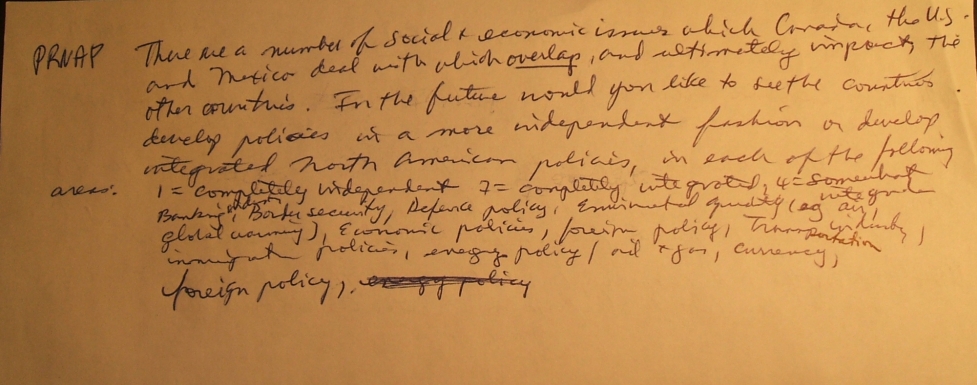 PRNAP There are a number of social + economic issues which Canada, the U.S.
and Mexico deal with which overlap, and ultimately impact the
other countries. In the future would you like to see the countries
develop policies in a more independent fashion or develop
integrated North American policies, in each of the following
areas: 1 = completely independent 7 = completely integrated, 4 = somewhat
integrated
Banking, Border security, Defence policy, Environmental quality (eg air,
global warming), Economic policies, foreign policy, Transportation industry,
immigration policies, energy policy / oil + gas, currency,
foreign policy, energy policy